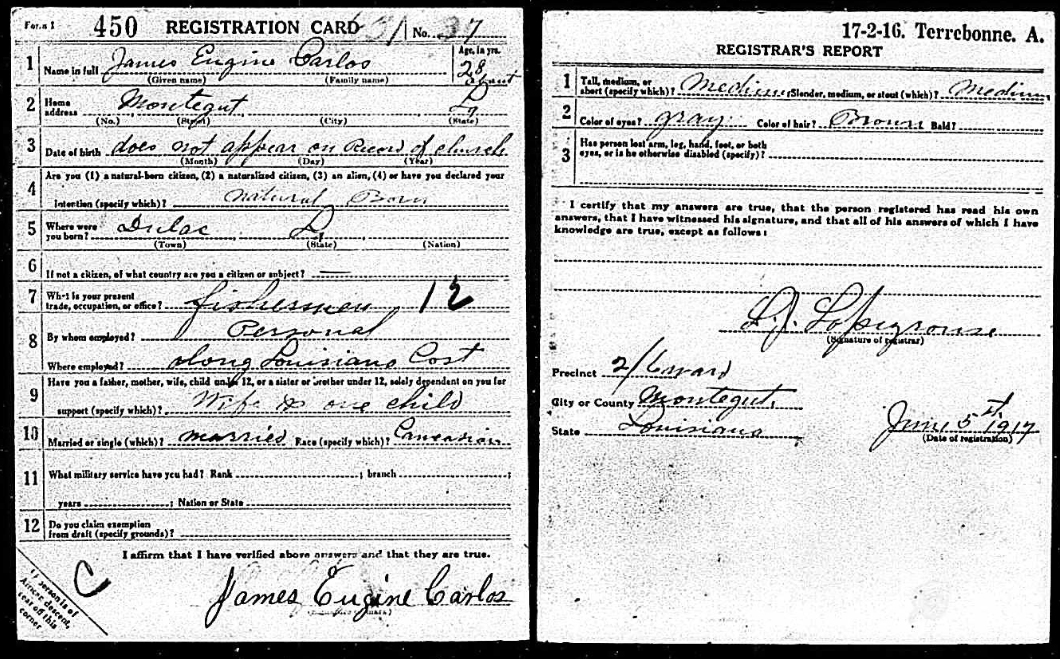 Form 1 450 REGISTRATION CARD 31 No. 37
1 Name in full James Eugine Carlos Age, in yrs. 28 about
(Given name) (Family name)
2 Home address Montegut La
(No.) (Street) (City) (State)
3 Date of birth does not appear on Record of church
(Month) (Day) (Year)
4 Are you (1) a natural-born citizen, (2) a naturalized citizen, (3) an alien, (4) or have you declared your
intention (specify which)? natural Born
5 Where were you born? Dulac La
(Town) (State) (Nation)
6 If not a citizen, of what country are you a citizen or subject?
7 What is your present trade, occupation, or office? fishermen 12
8 By whom employed? Personal
Where employed? along Louisiana Cost
9 Have you a father, mother, wife, child under 12, or a sister or brother under 12, solely dependent on you for
support (specify which)? Wife & one child
10 Married or single (which)? married Race (specify which)? Caucasian
11 What military service have you had? Rank ; branch ;
years ; Nation or State
12 Do you claim exemption from draft (specify grounds)?
I affirm that I have verified above answers and that they are true.
C
James Eugine Carlos
If person is of
African descent,
tear off this
corner
17-2-16. Terrebonne. A.
REGISTRAR'S REPORT
1 Tall, medium, or short (specify which)? Medium Slender, medium, or stout (which)? Medium
2 Color of eyes? gray Color of hair? Brown Bald?
3 Has person lost arm, leg, hand, foot, or both
eyes, or is he otherwise disabled (specify)?
I certify that my answers are true, that the person registered has read his own
answers, that I have witnessed his signature, and that all of his answers of which I have
knowledge are true, except as follows:
(Signature of registrar)
Precinct 2/6 ward
City or County Montegut
State Louisiana June 5 1917
(Date of registration)